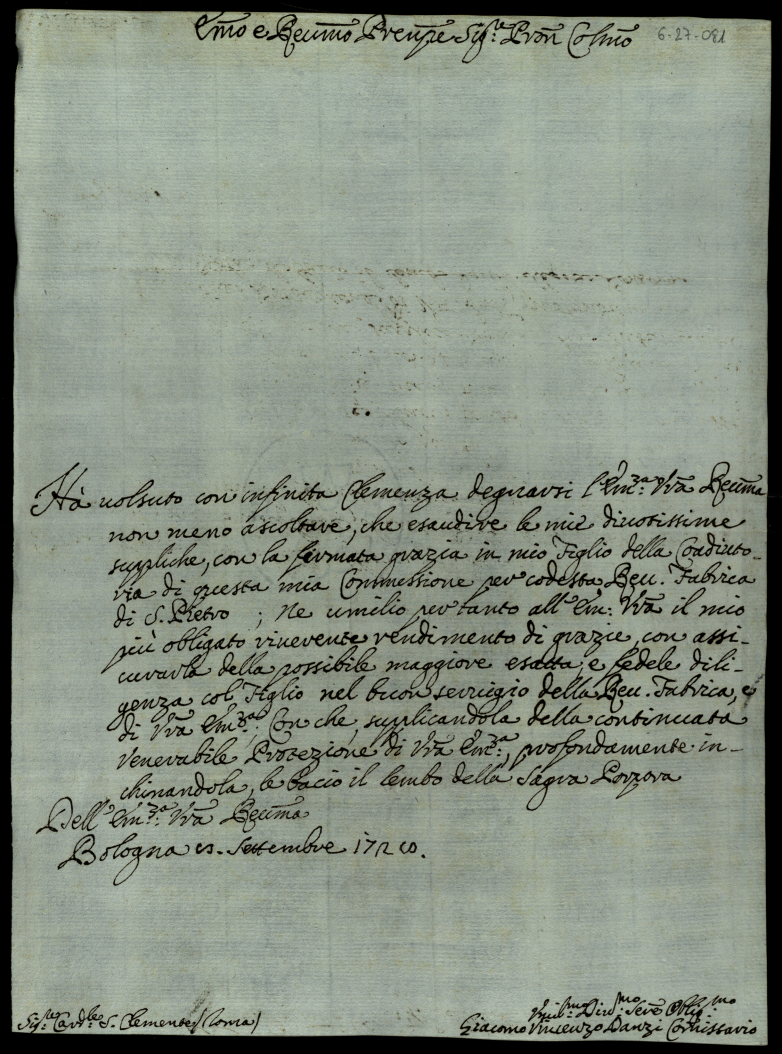 Emo e Recumo Prenpe Sigr. Pron Colmo 6-27-081
Hà uolsuto con infinita Clemenza degnarsi l'Emza: Vra Reuma
non meno ascoltare, che esaudire le mie diuotissime
suppliche, con la firmata grazia in mio Figlio della Coadiuto-
ria di questa mia Commessione per codesta Reu. Fabrica
di S. Pietro ; Ne umilio per tanto all'Em: Vra il mio
più obligato riuerente rendimento di grazie, con assi-
curarla della possibile maggiore esatta, e fedele dili-
genza col Figlio nel buon seruigio della Reu. Fabrica, e
di Vra Emza:; Con che supplicandola della continuata
Venerabile Protezione di Vra Emza:, profondamente in-
chinandola, le bacio il lembo della Sagra Porpora
Dell'Emza: Vra Reuma
Bologna Settembre
Sigr Cardle S. Clemente (Roma)
Umilmo Diumo Serre Obligmo
Giacomo Vincenzo Danzi Comissario